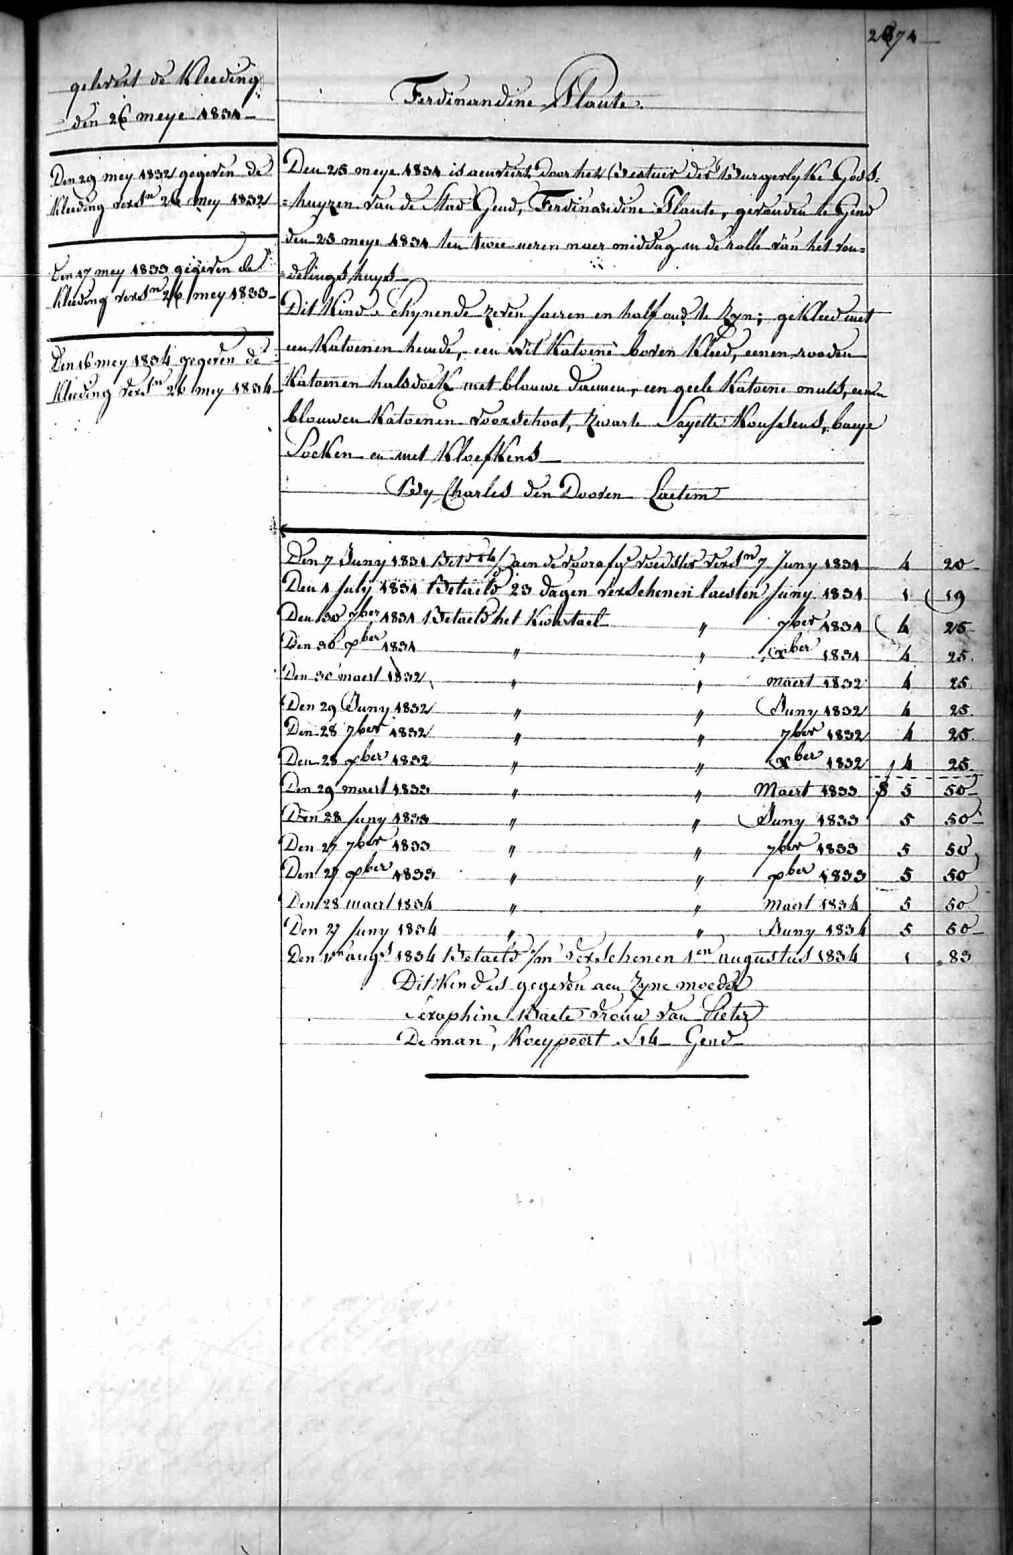 2874
gelevert de Kleeding
den 26 meye 1831
Den 29 mey 1832 gegeven de
Kleeding verSn 26 mey 1832
Den 17 mey 1833 gegeven de
Kleeding verSn 26 mey 1833
Den 16 mey 1834 gegeven de
Kleeding verSn 26 mey 1834
Ferdinandine Plaute.
Den 25 meye 1831 is aenveirt door het Bestuer der Burgerlyke Gods=
=huyzen van de Stad Gend, Ferdinandine Plaute, gevonden te Gend
den 25 meye 1831 ten twee ueren naer middag in de rolle van het von=
=delingshuys
Dit Kind schynende zeven jaeren en half oud te Zyn; gekleed met
een Katoenen hemde, een wit Katoene boven Kleed, eenen rooden
Katoenen halsdoek met blouwe, een geele Katoene muts, eenen
blouwen Katoenen voorschoot, zwarte Sayette Kousens, baeye
Socken en met Kloefkens
By Charles Den Dooven Laetem
Den 7 Juny 1831 Bet aen de voorafg voedster verSn 7 Juny 1831 4 20
Den 1 July 1831 Betaeld 23 dagen verschenen laesten Juny 1831 1 19
Den 30 7ber 1831 Betaeld het Kwartael " 7ber 1831 4 25
Den 30 xber 1831 " " xber 1831 4 25
Den 30 maert 1832 " " maert 1832 4 25
Den 29 Juny 1832 " " Juny 1832 4 25
Den 28 7ber 1832 " " 7ber 1832 4 25
Den 28 xber 1832 " " xber 1832 4 25
Den 29 maert 1833 " " Maert 1833 5 50
Den 28 Juny 1833 " " Juny 1833 5 50
Den 27 7ber 1833 " " 7ber 1833 5 50
Den 27 xber 1833 " " xber 1833 5 50
Den 28 maert 1834 " " Maert 1834 5 50
Den 27 Juny 1834 " " Juny 1834 5 50
Den augs 1834 Betaeld /m verschenen 1en augustus 1834 1 83
Dit Kind is gegeven aen Zyne moeder
Seraphine Baete vrouw van Pieter
De man, Koeypoort S14 Gend